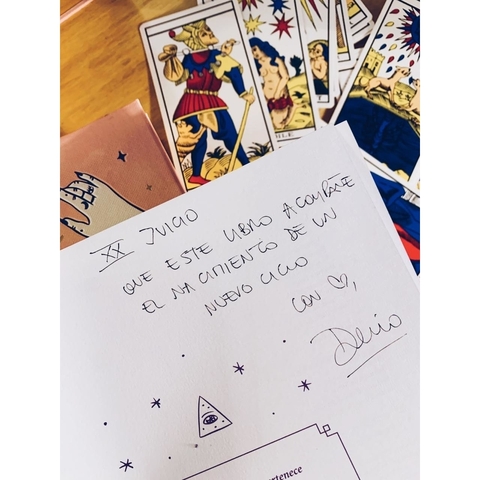 XX JUICIO
QUE ESTE LIBRO ACOMPAÑE
EL NACIMIENTO DE UN
NUEVO CICLO
CON ♡,